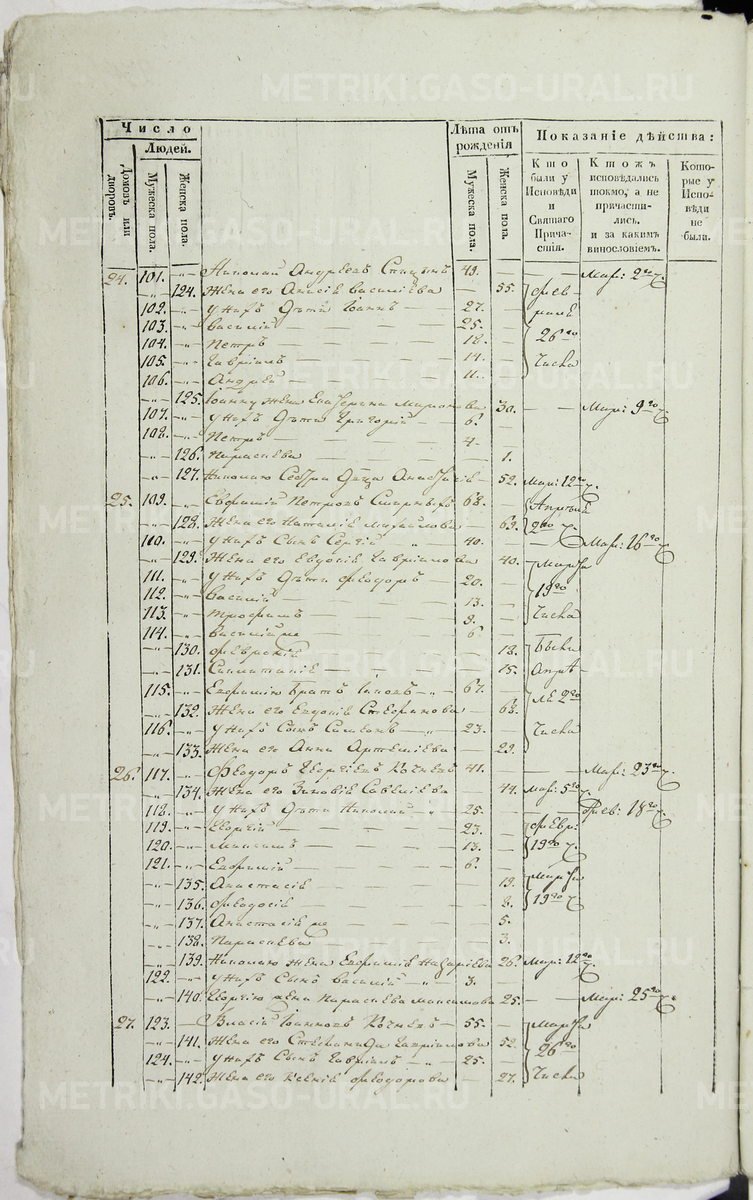 METRIKI.GASO-URAL.RU
Число
Людей.
Домовъ или дворовъ.
Мужеска пола.
Женска пола.
Лѣта отъ рожденія
Мужеска пола.
Женска пола.
Показаніе дѣйства:
Кто были у Исповѣди и Святаго Причастія.
Ктожъ исповѣдались токмо, а не причастились. и за какимъ винословіемъ.
Которые у Исповѣди не были.
24. 101. Николай Андреевъ 49. — — Мар: 2го ч.
124. Жена его Анисія Василіева 55. Фев-
102. У нихъ дѣти Іоаннъ 27. ралѣ
103. Василій 25.
104. Петръ 18. 26го
105. Гавріилъ 14. Числа
106. Андрей 11.
125. Іоанну жена Екатерина Миронова 30. — Мар: 9го ч.
107. У нихъ дѣти Григорій 6.
108. Петръ 4.
126. Параскева 1.
127. Николаю сестра 52. Мар: 12го ч.
25. 109. Петровъ 68. Апрѣля
128. Жена его Наталія Михайлова 69. 2го ч.
110. У нихъ сынъ Сергій 40. — Мар: 16го ч.
129. Жена его Евдокія Гавріилова 40. Марта
111. У нихъ дѣти Ѳеодоръ 20. 19го
112. Василій 13.
113. Трофимъ 9. Числа
114. Василій же 6
130. Февронія 18. Были
131. 15. Апрѣ-
115. братъ 67. лѣ 2го
132. Жена его Евдокія Стефанова 68.
116. У нихъ сынъ Симеонъ 23. Числа
133. Жена его Анна Артеміева 29.
26. 117. Ѳеодоръ Георгіевъ 41. — — Мар: 23го ч.
134. Жена его Зиновія Савеліева 44. Мар: 5го ч.
118. У нихъ дѣти Николай 25. — Фев: 18го ч.
119. Георгій 23. Февр:
120. 13. 19го ч.
121. Евфимій 6.
135. Анастасія 19. Марта
136. Ѳеодосія 8. 19го ч.
137. Анастасія же 5.
138. Параскева 3.
139. Николаю жена Евфимія Назаріева 26. Мар: 12го ч.
122. У нихъ сынъ Василій 3.
140. Георгію жена Параскева Максимова 25. — Мар: 25го ч.
27. 123. Власій Іоанновъ 55. Марта
141. Жена его Стефанида Гавріилова 52. 26го
124. У нихъ сынъ Гавріилъ 25.
142. Жена его Ксенія Ѳеодорова 27. Числа